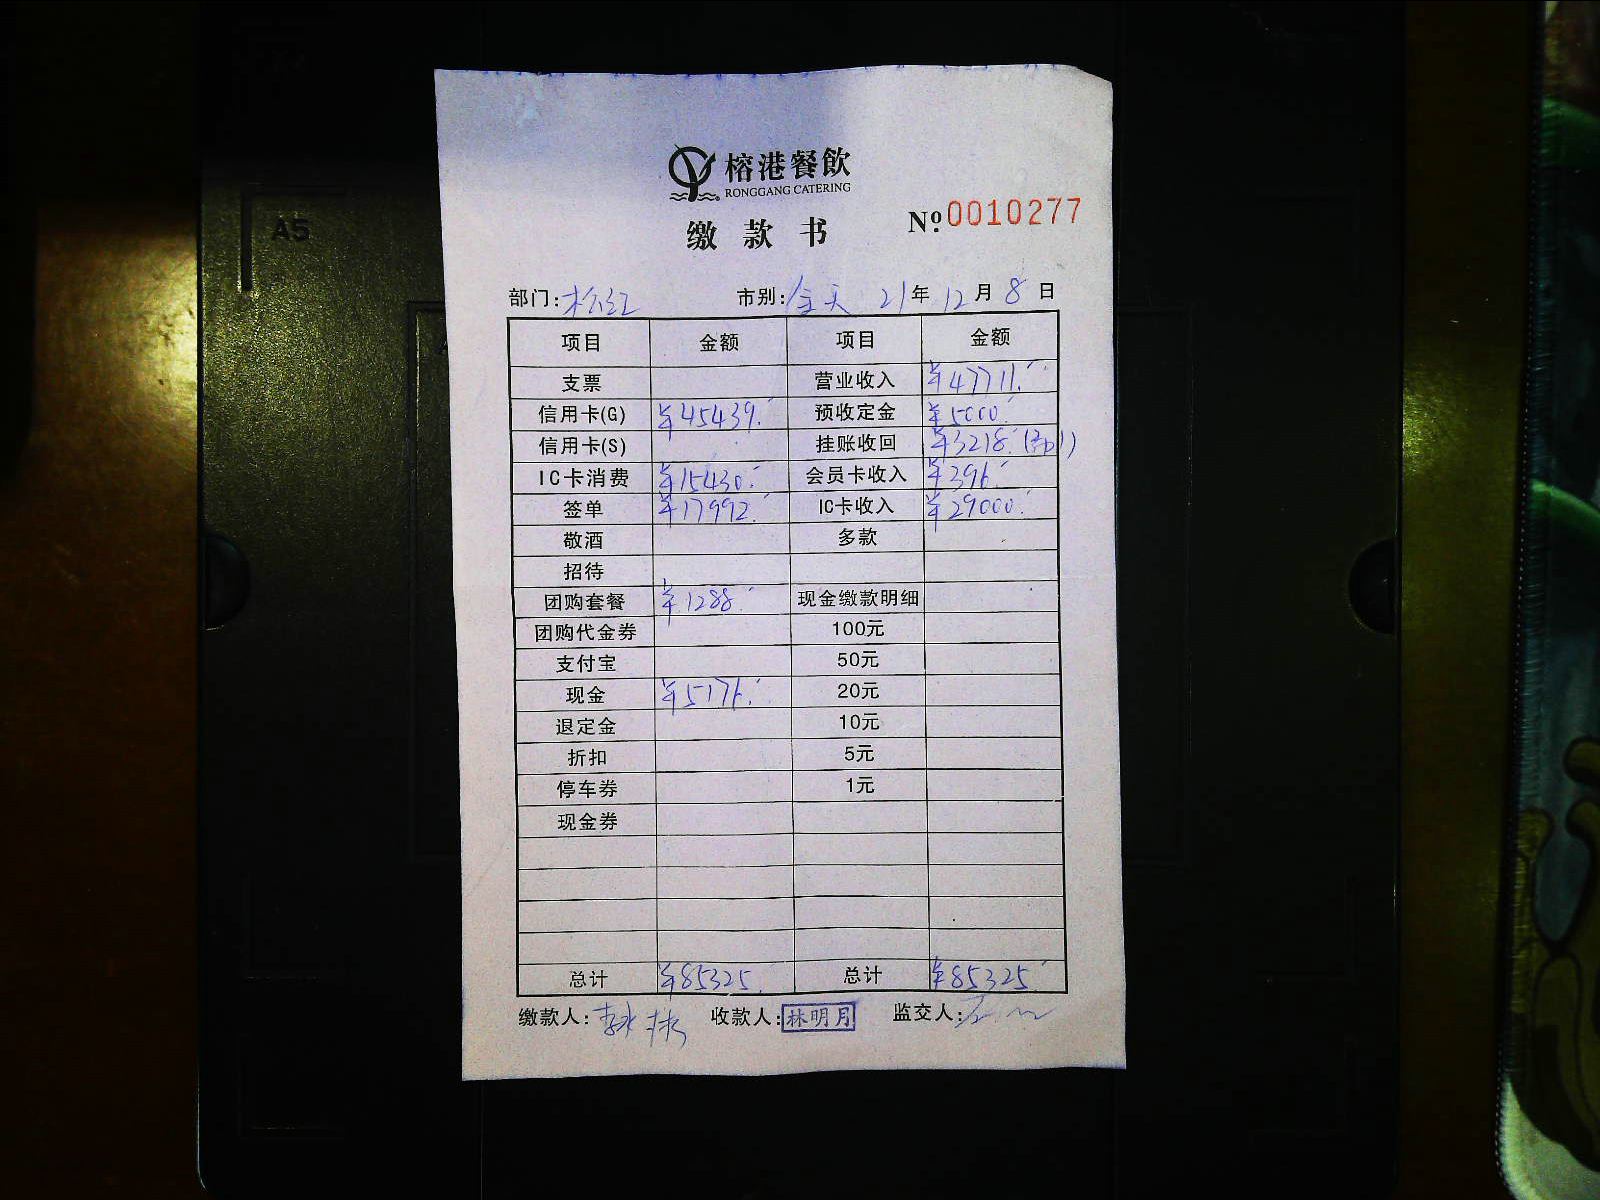 A5
榕港餐飲
RONGGANG CATERING
缴款书 Nº 0010277
部门: 市别: 全天 21年 12月 8日
项目 金额 项目 金额
支票 营业收入 ¥47711.-
信用卡(G) ¥45439.- 预收定金 ¥5000.-
信用卡(S) 挂账收回 ¥3218.-
IC卡消费 ¥15430.- 会员卡收入 ¥396.-
签单 ¥17992.- IC卡收入 ¥29000.-
敬酒 多款
招待
团购套餐 ¥1288.- 现金缴款明细
团购代金券 100元
支付宝 50元
现金 ¥5176.- 20元
退定金 10元
折扣 5元
停车券 1元
现金券
总计 ¥85325.- 总计 ¥85325.-
缴款人: 收款人: 林明月 监交人: